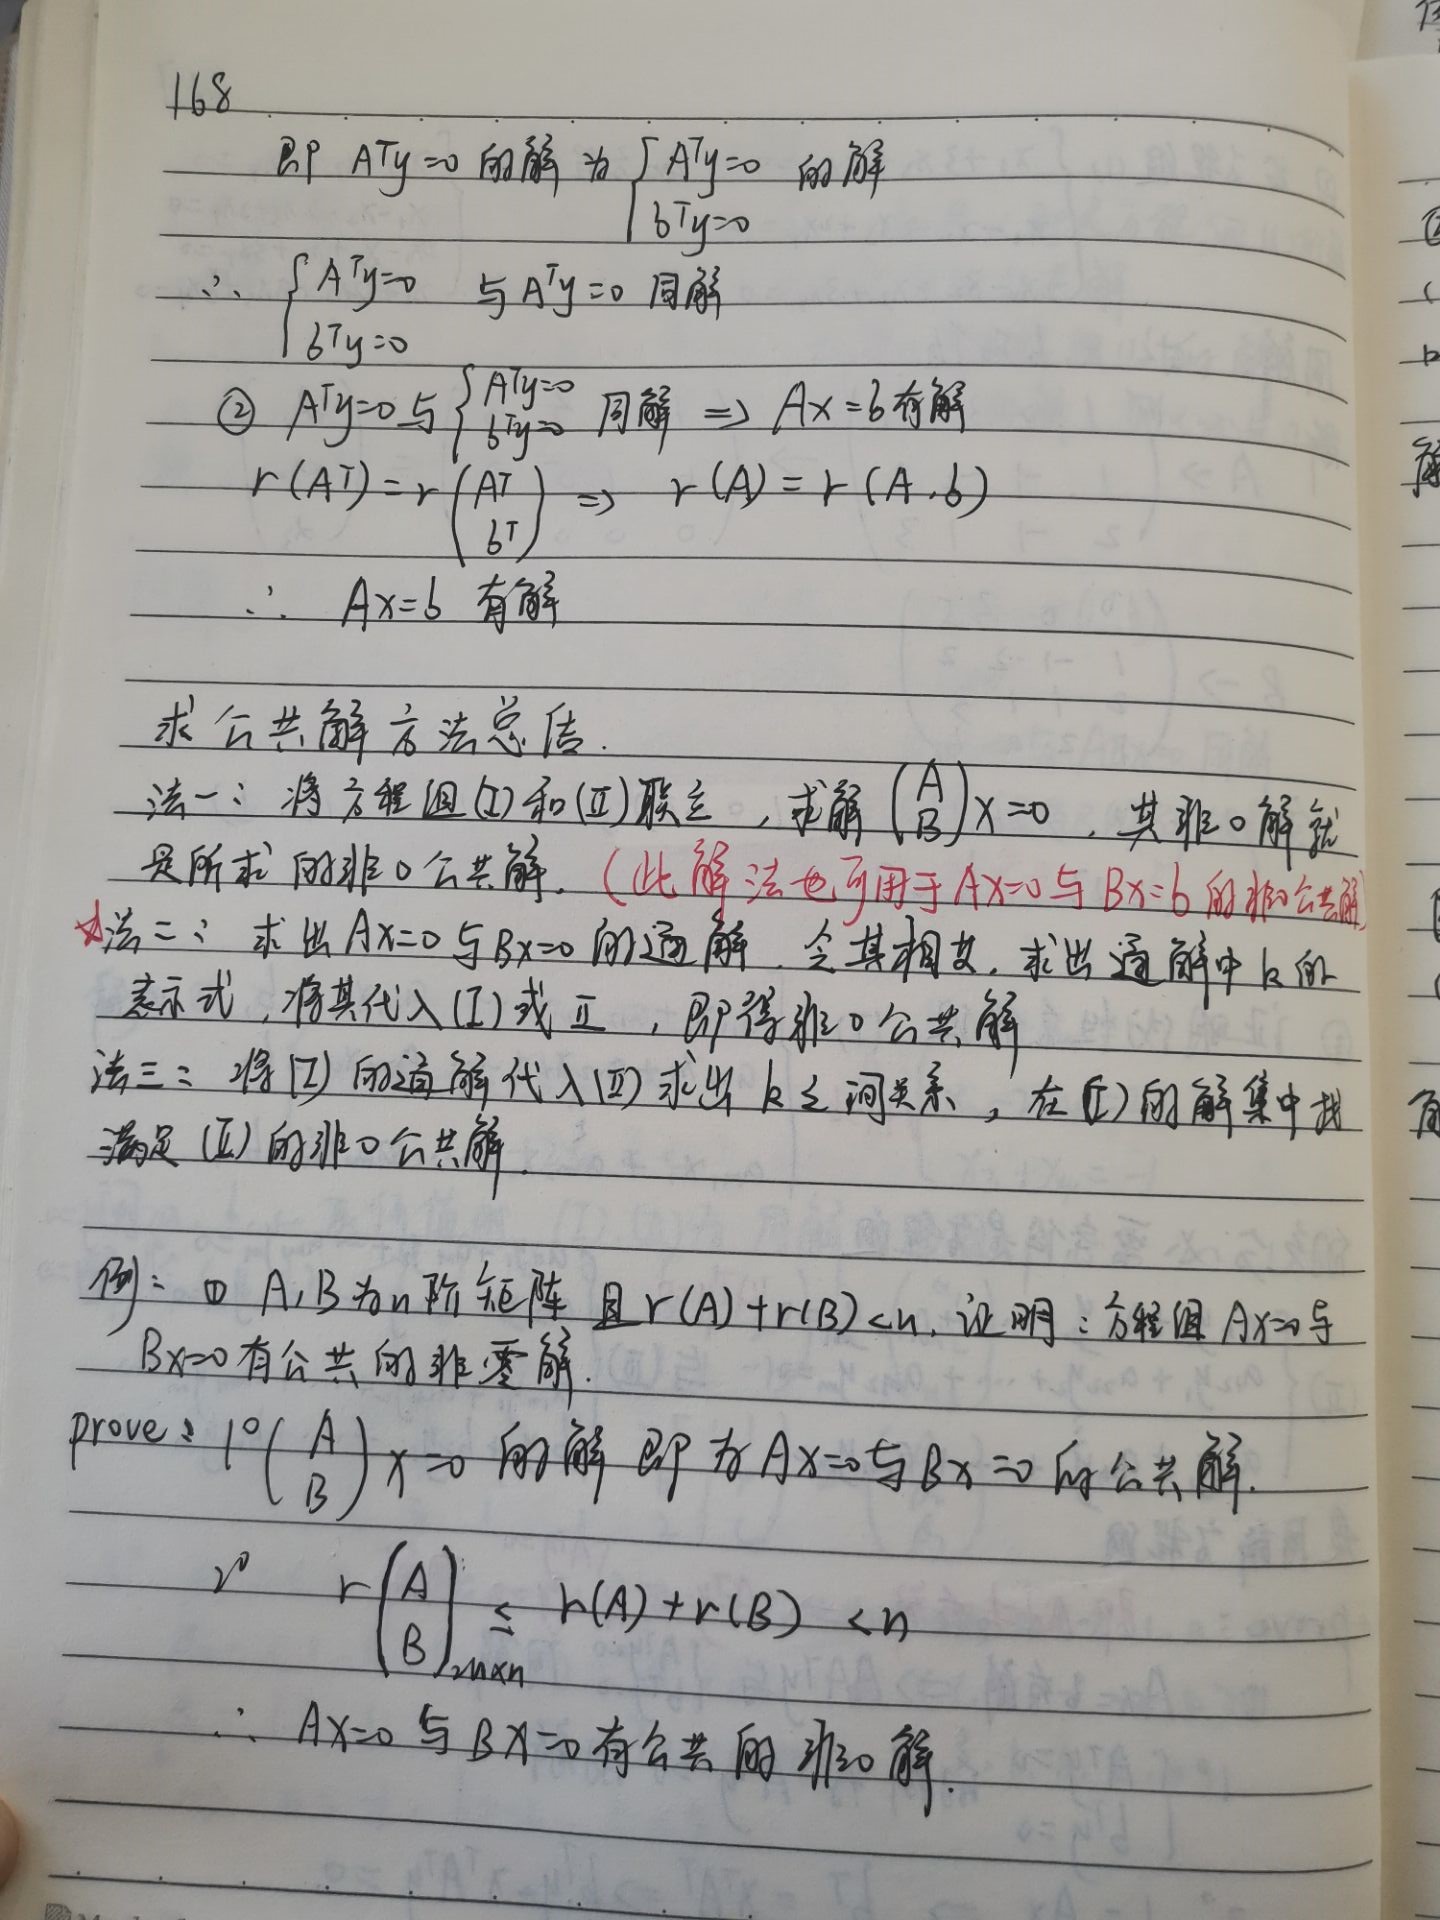 168
即 Aᵀy=0 的解为 { Aᵀy=0 的解
bᵀy=0
∴ { Aᵀy=0 与 Aᵀy=0 同解
bᵀy=0
② Aᵀy=0 与 { Aᵀy=0 bᵀy=0 同解 ⇒ Ax=b 有解
r(Aᵀ)=r(Aᵀ bᵀ) ⇒ r(A)=r(A,b)
∴ Ax=b 有解
求公共解方法总结.
法一: 将方程组(I)和(II)联立,求解(A B)x=0,其非0解就
是所求的非0公共解.(此解法也可用于Ax=0与Bx=b的非0公共解)
☆法二: 求出Ax=0与Bx=0的通解.令其相等.求出通解中k的
表示式,将其代入(I)或II,即得非0公共解
法三: 将(I)的通解代入(II)求出k之间关系,在(I)的解集中找
满足(II)的非0公共解.
例: ① A,B为n阶矩阵 且r(A)+r(B)<n.证明:方程组Ax=0与
Bx=0有公共的非零解.
prove: 1°(A B)x=0 的解即为Ax=0与Bx=0的公共解.
2° r(A B)2n×n ≤ r(A)+r(B) <n
∴ Ax=0与Bx=0有公共的非0解.